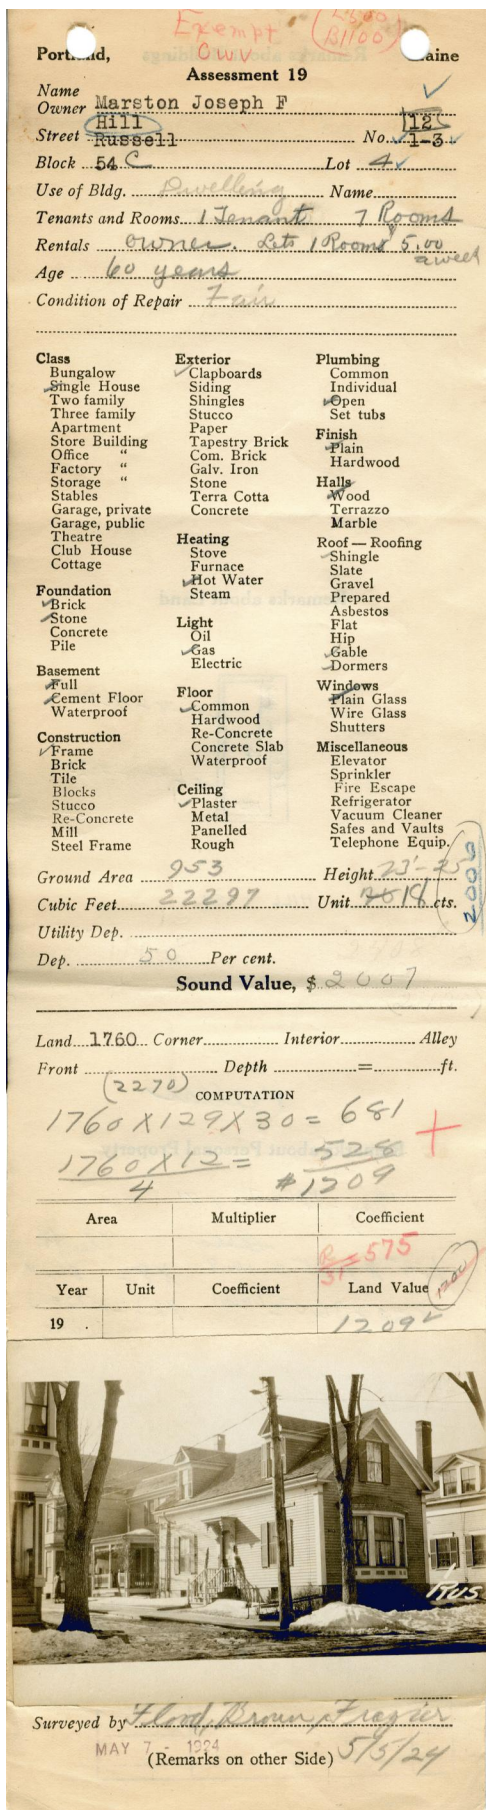 Exempt
OWV
B1100
Portland, Maine
Assessment 19
Name
Owner Marston Joseph F
Hill 12
Street Russell No. 1-3
Block 54 C Lot 4
Use of Bldg. Dwelling Name
Tenants and Rooms 1 Tenant 7 Rooms
Rentals owner. Lets 1 Room $5.00
a week
Age 60 years
Condition of Repair Fair
Class
Bungalow
Single House
Two family
Three family
Apartment
Store Building
Office "
Factory "
Storage "
Stables
Garage, private
Garage, public
Theatre
Club House
Cottage
Foundation
Brick
Stone
Concrete
Pile
Basement
Full
Cement Floor
Waterproof
Construction
Frame
Brick
Tile
Blocks
Stucco
Re-Concrete
Mill
Steel Frame
Exterior
Clapboards
Siding
Shingles
Stucco
Paper
Tapestry Brick
Com. Brick
Galv. Iron
Stone
Terra Cotta
Concrete
Heating
Stove
Furnace
Hot Water
Steam
Light
Oil
Gas
Electric
Floor
Common
Hardwood
Re-Concrete
Concrete Slab
Waterproof
Ceiling
Plaster
Metal
Panelled
Rough
Plumbing
Common
Individual
Open
Set tubs
Finish
Plain
Hardwood
Halls
Wood
Terrazzo
Marble
Roof — Roofing
Shingle
Slate
Gravel
Prepared
Asbestos
Flat
Hip
Gable
Dormers
Windows
Plain Glass
Wire Glass
Shutters
Miscellaneous
Elevator
Sprinkler
Fire Escape
Refrigerator
Vacuum Cleaner
Safes and Vaults
Telephone Equip.
Ground Area 953 Height 23'-25
Cubic Feet 22297 Unit 18 cts.
2006
Utility Dep.
Dep. 50 Per cent.
Sound Value, $ 2007
Land 1760 Corner Interior Alley
Front Depth = ft.
(2270)
COMPUTATION
1760 X 129 X 30 = 681
1760 X 12 = 528
4 $1209
Area Multiplier Coefficient
R/51 = 575
Year Unit Coefficient Land Value
1200
19 . 1209
Rus
Surveyed by Flood, Brown, Frazier
MAY 7 - 1924
5/5/24
(Remarks on other Side)